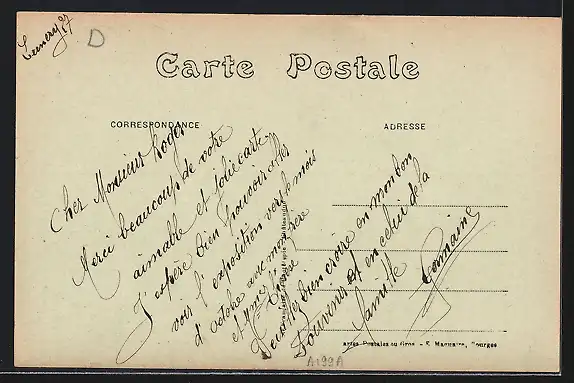 Lunery 27
D
Carte Postale
CORRESPONDANCE
ADRESSE
Cher Monsieur Roger
Merci beaucoup de votre
aimable et jolie carte.
J'espère bien pouvoir aller
voir l'exposition vers le mois
d'octobre avec mon frère
et Mme
Veuillez bien croire en mon bon
Souvenir et en celui de la
famille
Germaine
Cartes Postales en Gros - E. Maquaire, Bourges
A199A